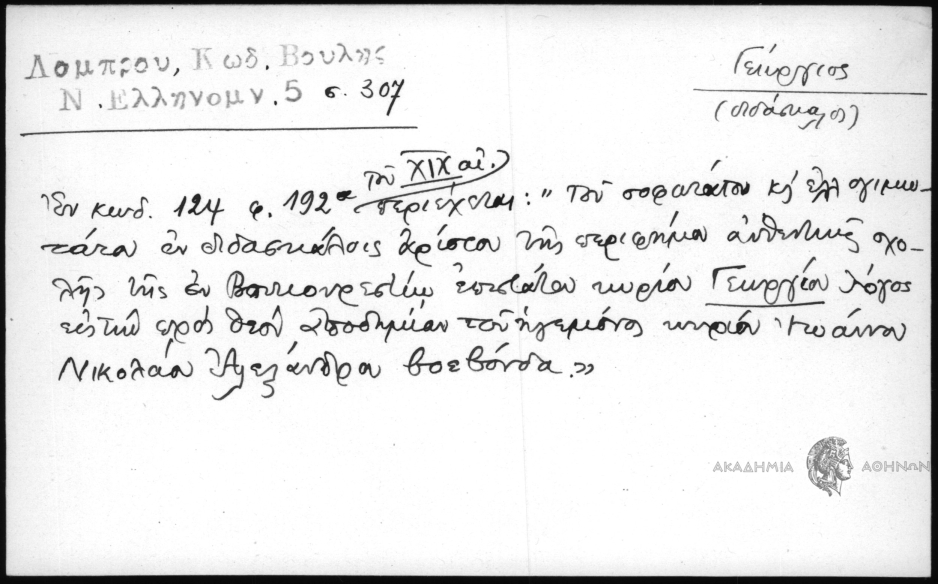 Λαμπρου, Κωδ. Βουλης
Ν. Ελληνομν. 5 σ. 307
Γεώργιος
(διδάσκαλος)
τοῦ XIX αἰ.
Ἐν κωδ. 124 φ. 192α περιέχεται: "Τοῦ σοφωτάτου κỳ ἐλλογιμω-
τάτου ἐν διδασκάλοις ἀρίστου τῆς περιφήμου αὐθεντικῆς σχο-
λῆς τῆς ἐν Βουκουρεστίῳ ἐπιστάτου κυρίου Γεωργίου λόγος
εἰς τὴν πρὸς θεὸν ἀποδημίαν τοῦ ἡγεμόνος κυρίου Ἰωάννου
Νικολάου Ἀλεξάνδρου βοεβόνδα."
ΑΚΑΔΗΜΙΑ ΑΘΗΝΩΝ